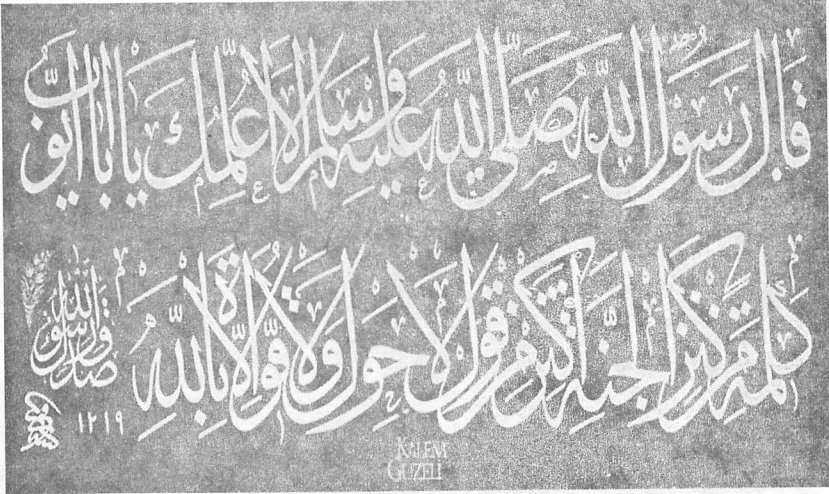 قال رسول الله صلى الله عليه وسلم الا اعلمك يا ابا ايوب
كلمة من كنز الجنة اكثر من قول لا حول ولا قوة الا بالله
صدق رسول الله
١٢١٩
KALEM GÜZELİ